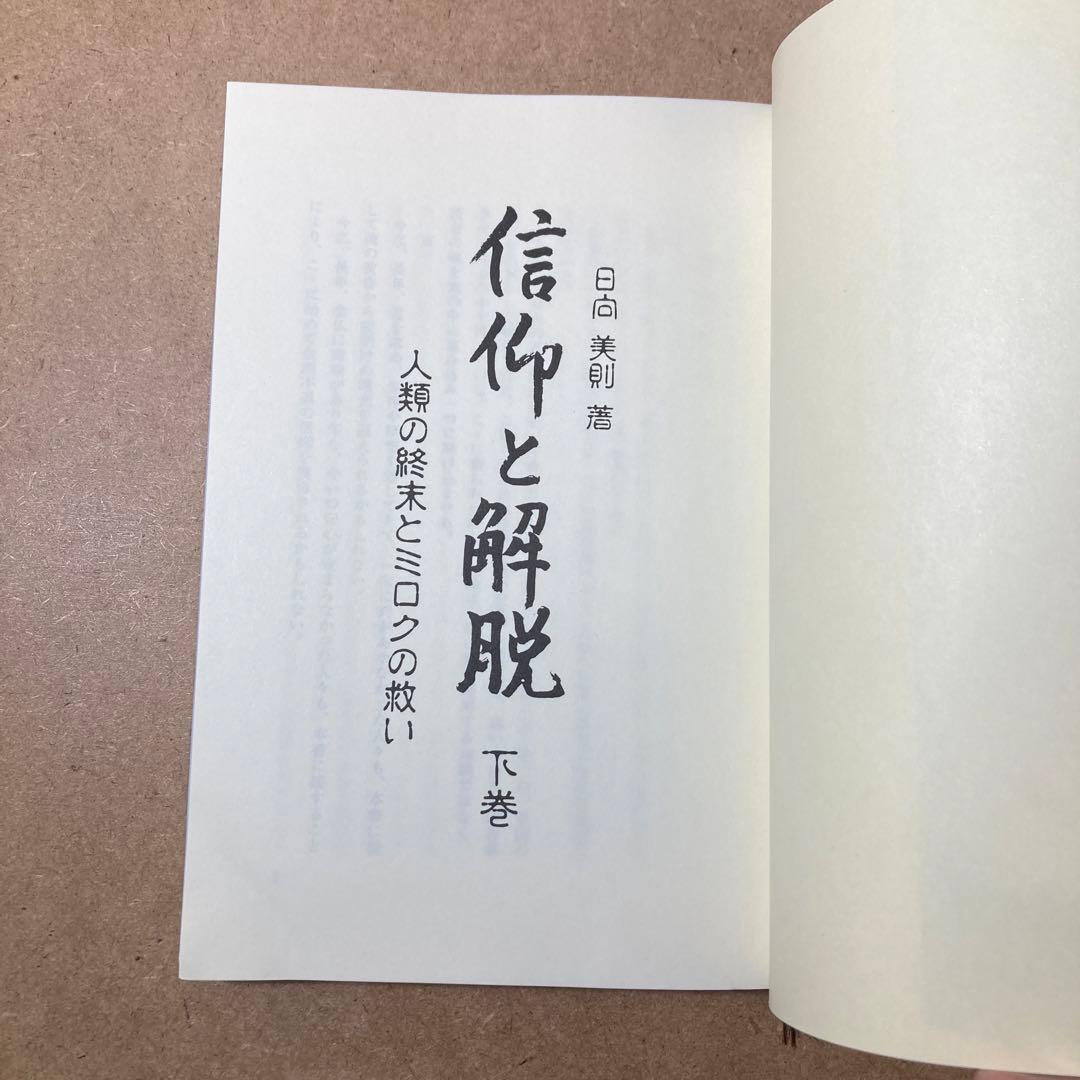 日向 美則 著
信仰と解脱 下巻
人類の終末とミロクの救い